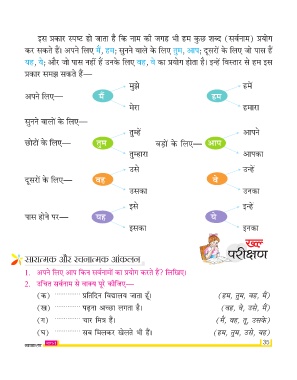 इस प्रकार स्पष्ट हो जाता है कि नाम की जगह भी हम कुछ शब्द (सर्वनाम) प्रयोग
कर सकते हैं। अपने लिए मैं, हम; सुनने वाले के लिए तुम, आप; दूसरों के लिए जो पास हैं
यह, ये; और जो पास नहीं हैं उनके लिए वह, वे का प्रयोग होता है। इन्हें विस्तार से हम इस
प्रकार समझ सकते हैं—
मुझे हमें
अपने लिए— मैं हम
मेरा हमारा
सुनने वालों के लिए—
तुम्हें आपने
छोटों के लिए— तुम बड़ों के लिए— आप
तुम्हारा आपका
उसे उन्हें
दूसरों के लिए— वह वे
उसका उनका
इसे इन्हें
पास होने पर— यह ये
इसका इनका
सारात्मक और रचनात्मक आंकलन
परीक्षण
1. अपने लिए आप किन सर्वनामों का प्रयोग करते हैं? लिखिए।
2. उचित सर्वनाम से वाक्य पूरे कीजिए—
(क) ............ प्रतिदिन विद्यालय जाता हूँ। (हम, तुम, वह, मैं)
(ख) ............ पढ़ना अच्छा लगता है। (वह, वे, उसे, मैं)
(ग) ............ चार मित्र हैं। (मैं, वह, तू, उसके)
(घ) ............ सब मिलकर खेलते भी हैं। (हम, तुम, उसे, वह)
35